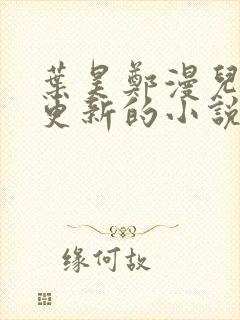 葉昊鄭漫兒
更新的小說
缘何故